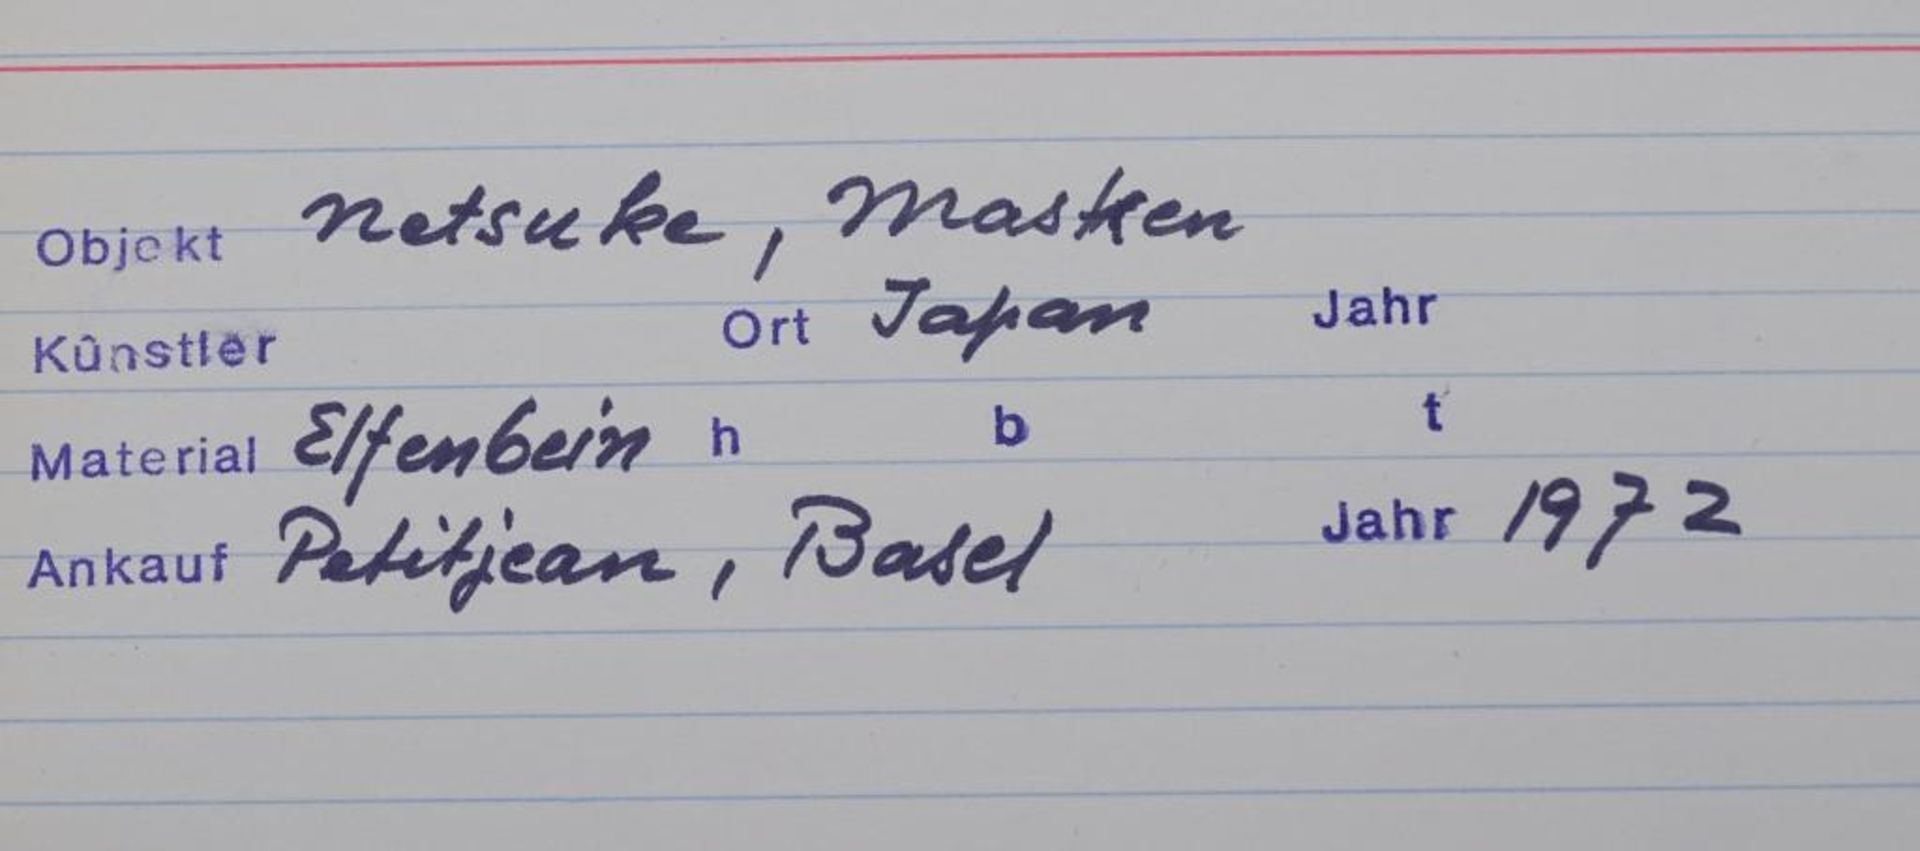 Objekt Netsuke, Masken
Künstler Ort Japan Jahr
Material Elfenbein h b t
Ankauf Petitjean, Basel Jahr 1972